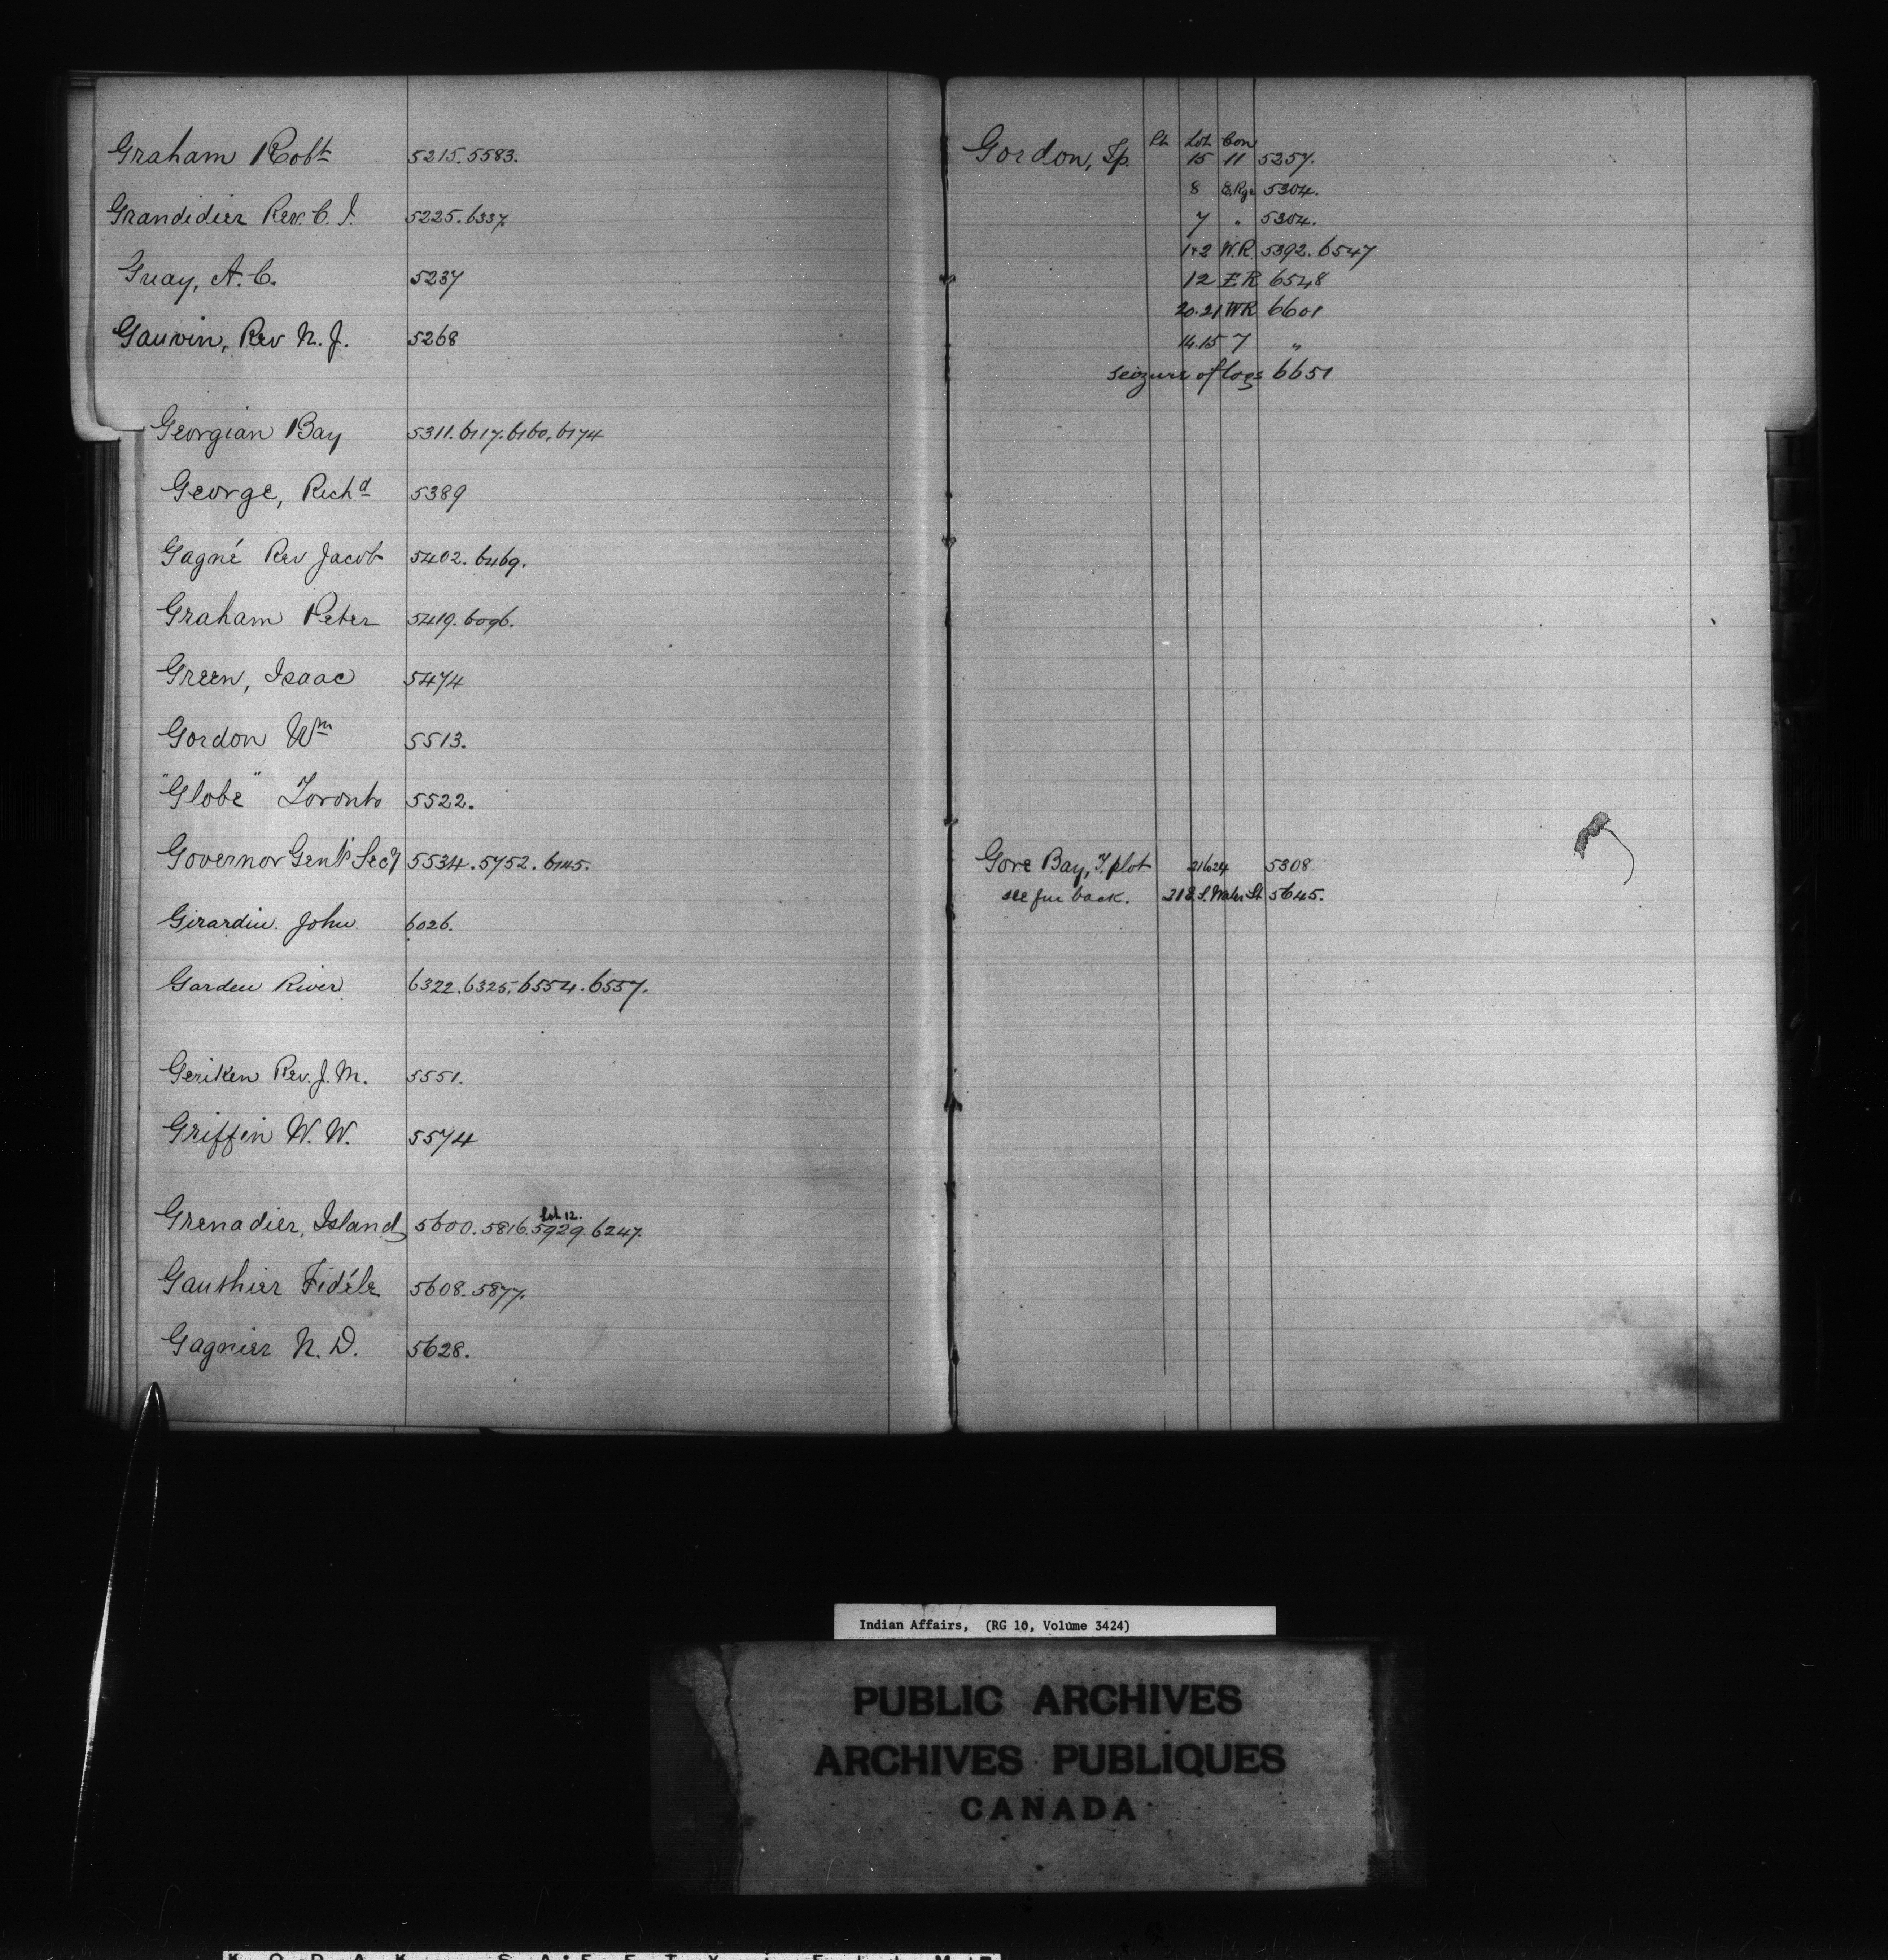 Graham Robt 5215. 5583.
Grandidier Rev. C. I. 5225. 6337.
Guay, A. C. 5237
Gauvin, Rev N. J. 5268
Georgian Bay 5311. 6117. 6160, 6174
George, Richd 5389
Gagné Rev Jacob 5402. 6469.
Graham Peter 5419. 6096.
Green, Isaac 5474
Gordon Wm 5513.
"Globe" Toronto 5522.
Governor Genl's Secy 5534. 5752. 6145.
Girardin. John. 6026.
Garden River 6322. 6325. 6554. 6557.
Geriken Rev. J. M. 5551.
Griffin W. W. 5574
Lot 12.
Grenadier, Island 5600. 5816. 5929. 6247.
Gauthier Fidéle 5608. 5877.
Gagnier N. D. 5628.
Lot Con
Gordon, Tp. 15 11 5257.
8 E. Rge 5304.
7 " 5304.
1+2 W. R. 5392. 6547
12 E R 6548
20. 21 WR 6601
14. 15 7 "
seizure of logs 6651
Gore Bay, T. plot 5308
see fur back. S. Water St 5645.
Indian Affairs, (RG 10, Volume 3424)
PUBLIC ARCHIVES
ARCHIVES PUBLIQUES
CANADA
KODAK SAFETY FILM